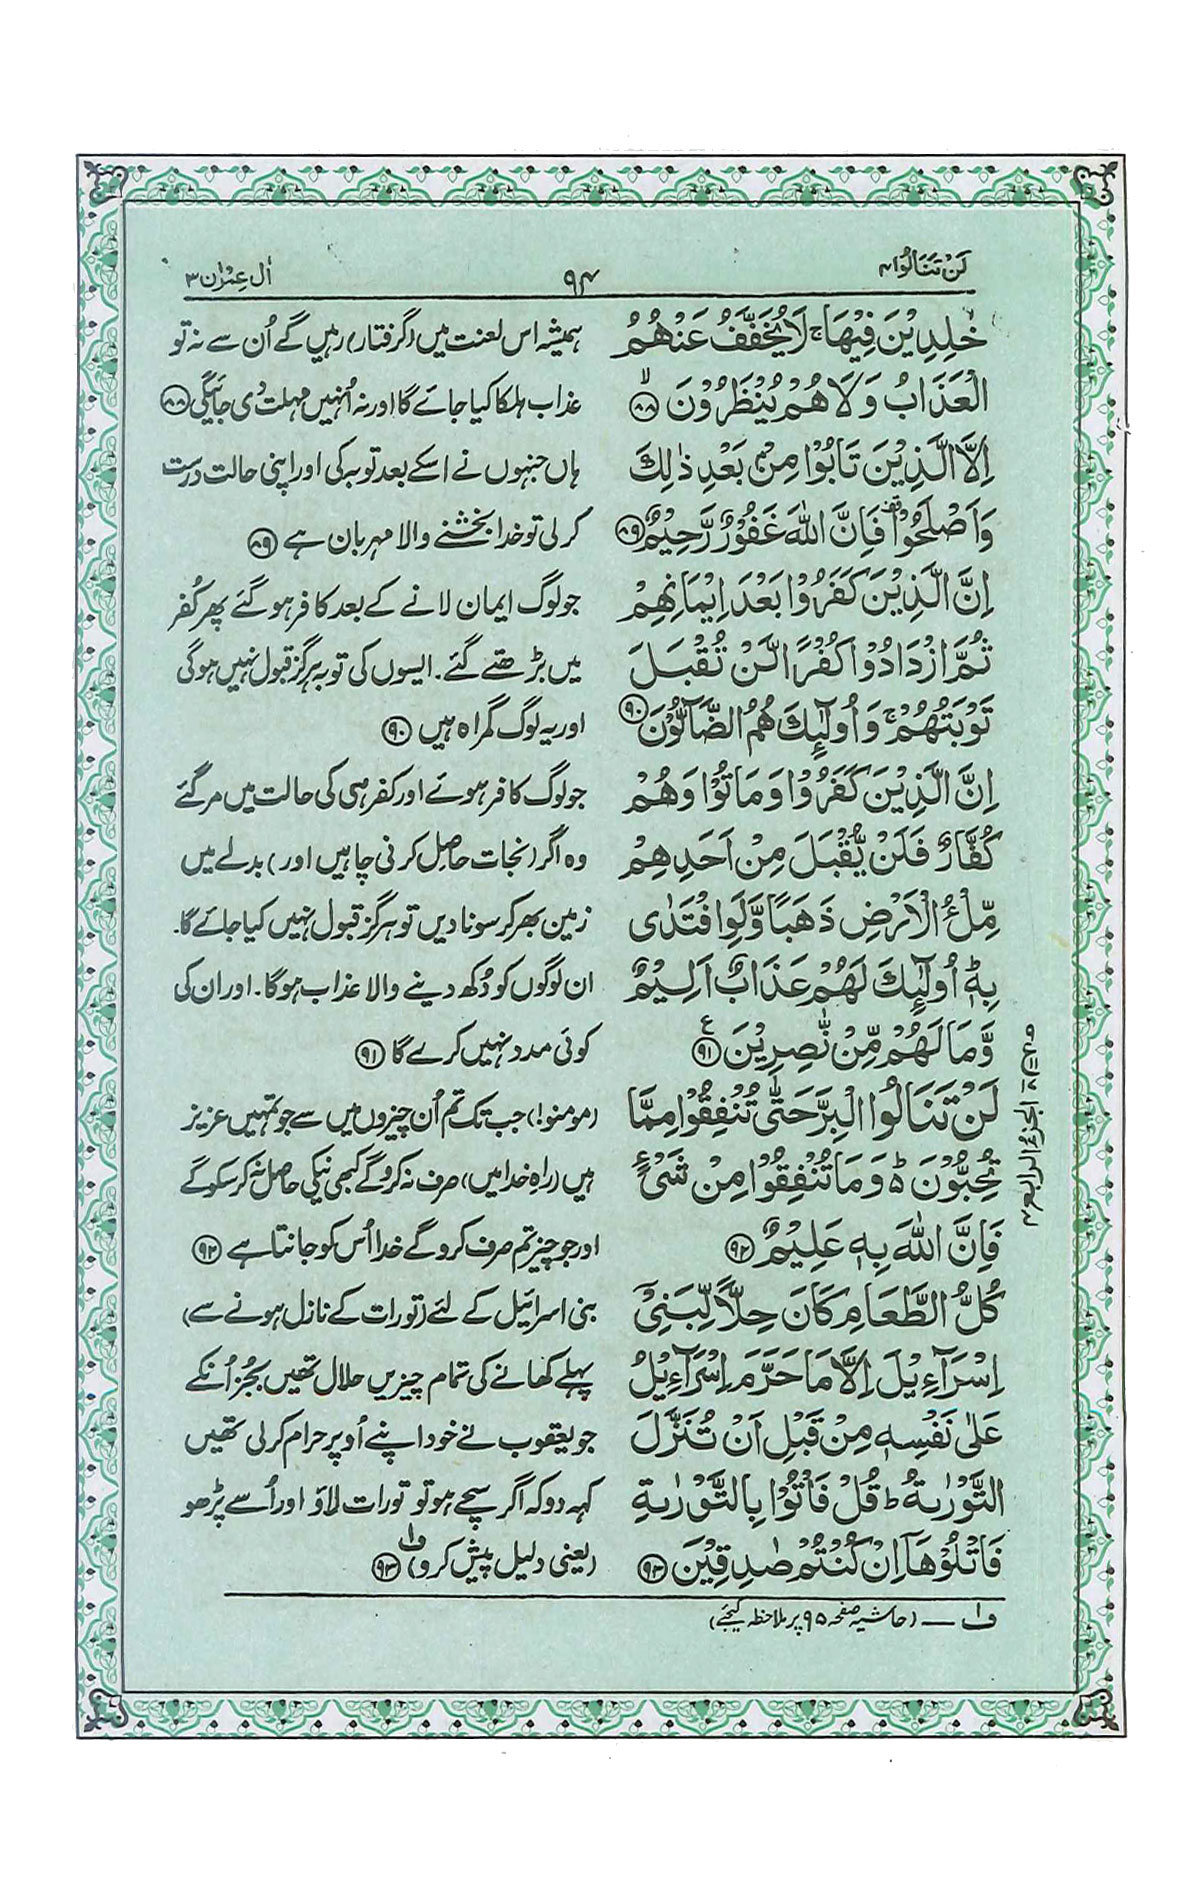 لَنْ تَنَالُوا ۴
۹۴
اٰلِ عِمْرٰن ۳
خٰلِدِيْنَ فِيْهَا ۚ لَا يُخَفَّفُ عَنْهُمُ
الْعَذَابُ وَلَا هُمْ يُنْظَرُوْنَ ۙ ﴿۸۸﴾
اِلَّا الَّذِيْنَ تَابُوْا مِنْۢ بَعْدِ ذٰلِكَ
وَاَصْلَحُوْا ۫ فَاِنَّ اللّٰهَ غَفُوْرٌ رَّحِيْمٌ ﴿۸۹﴾
اِنَّ الَّذِيْنَ كَفَرُوْا بَعْدَ اِيْمَانِهِمْ
ثُمَّ ازْدَادُوْا كُفْرًا لَّنْ تُقْبَلَ
تَوْبَتُهُمْ ۚ وَاُولٰٓئِكَ هُمُ الضَّآلُّوْنَ ﴿۹۰﴾
اِنَّ الَّذِيْنَ كَفَرُوْا وَمَاتُوْا وَهُمْ
كُفَّارٌ فَلَنْ يُّقْبَلَ مِنْ اَحَدِهِمْ
مِّلْءُ الْاَرْضِ ذَهَبًا وَّلَوِ افْتَدٰى
بِهٖ ؕ اُولٰٓئِكَ لَهُمْ عَذَابٌ اَلِيْمٌ
وَّمَا لَهُمْ مِّنْ نّٰصِرِيْنَ ﴿۹۱﴾ ع
لَنْ تَنَالُوا الْبِرَّ حَتّٰى تُنْفِقُوْا مِمَّا
تُحِبُّوْنَ ؕ وَمَا تُنْفِقُوْا مِنْ شَىْءٍ
فَاِنَّ اللّٰهَ بِهٖ عَلِيْمٌ ﴿۹۲﴾
كُلُّ الطَّعَامِ كَانَ حِلًّا لِّبَنِىْۤ
اِسْرَآءِيْلَ اِلَّا مَا حَرَّمَ اِسْرَآءِيْلُ
عَلٰى نَفْسِهٖ مِنْ قَبْلِ اَنْ تُنَزَّلَ
التَّوْرٰىةُ ؕ قُلْ فَاْتُوْا بِالتَّوْرٰىةِ
فَاتْلُوْهَاۤ اِنْ كُنْتُمْ صٰدِقِيْنَ ﴿۹۳﴾
ہمیشہ اس لعنت میں (گرفتار) رہیں گے اُن سے نہ تو
عذاب ہلکا کیا جائے گا اور نہ اُنہیں مہلت دی جائیگی ﴿۸۸﴾
ہاں جنہوں نے اسکے بعد توبہ کی اور اپنی حالت درست
کرلی تو خدا بخشنے والا مہربان ہے ﴿۸۹﴾
جو لوگ ایمان لانے کے بعد کافر ہوگئے پھر کُفر
میں بڑھتے گئے۔ ایسوں کی توبہ ہرگز قبول نہیں ہوگی
اور یہ لوگ گمراہ ہیں ﴿۹۰﴾
جو لوگ کافر ہوئے اور کفر ہی کی حالت میں مرگئے
وہ اگر (نجات حاصل کرنی چاہیں اور) بدلے میں
زمین بھر کر سونا دیں تو ہرگز قبول نہیں کیا جائے گا۔
ان لوگوں کو دُکھ دینے والا عذاب ہوگا۔ اور ان کی
کوئی مدد نہیں کرے گا ﴿۹۱﴾
(مومنو!) جب تک تم اُن چیزوں میں سے جو تمہیں عزیز
ہیں (راہِ خدا میں) صرف نہ کروگے کبھی نیکی حاصل نہ کر سکوگے
اور جو چیز تم صرف کروگے خدا اُس کو جانتا ہے ﴿۹۲﴾
بنی اسرائیل کے لئے (تورات کے نازل ہونے سے)
پہلے کھانے کی تمام چیزیں حلال تھیں بجز اُنکے
جو یعقوب نے خود اپنے اُوپر حرام کرلی تھیں
کہہ دو کہ اگر سچے ہو تو تورات لاؤ اور اُسے پڑھو
(یعنی دلیل پیش کرو) ف۱ ﴿۹۳﴾
الجزء الرابع ۴
ف۱ — (حاشیہ صفحہ ۹۵ پر ملاحظہ کیجئے)